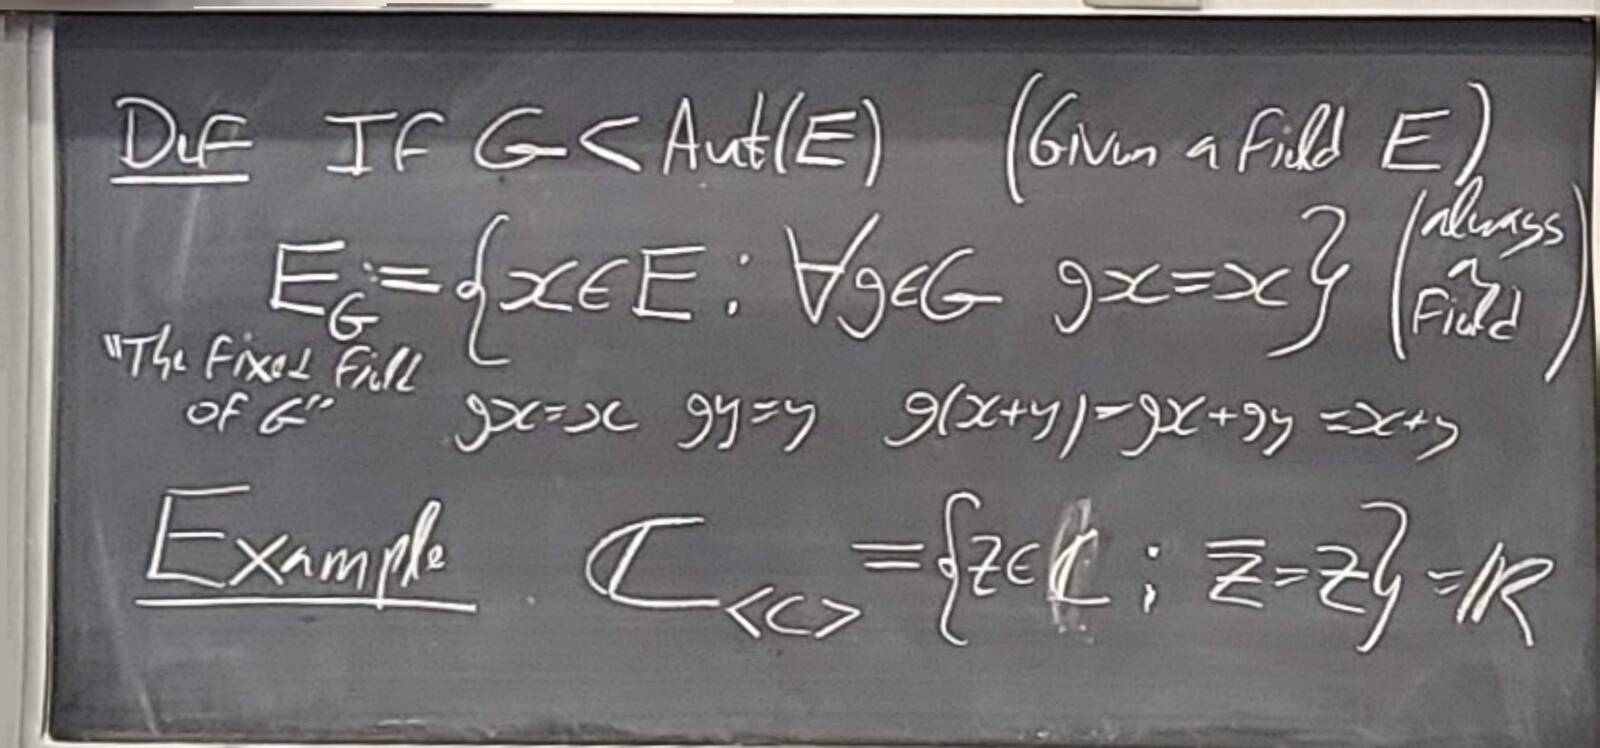 Def If G < Aut(E) (Given a field E)
E_G := {x∈E : ∀g∈G gx=x} (always a field)
"The fixed field of G"
gx=x gy=y g(x+y)=gx+gy=x+y
Example ℂ_<c> = {z∈ℂ ; z̅=z} = ℝ